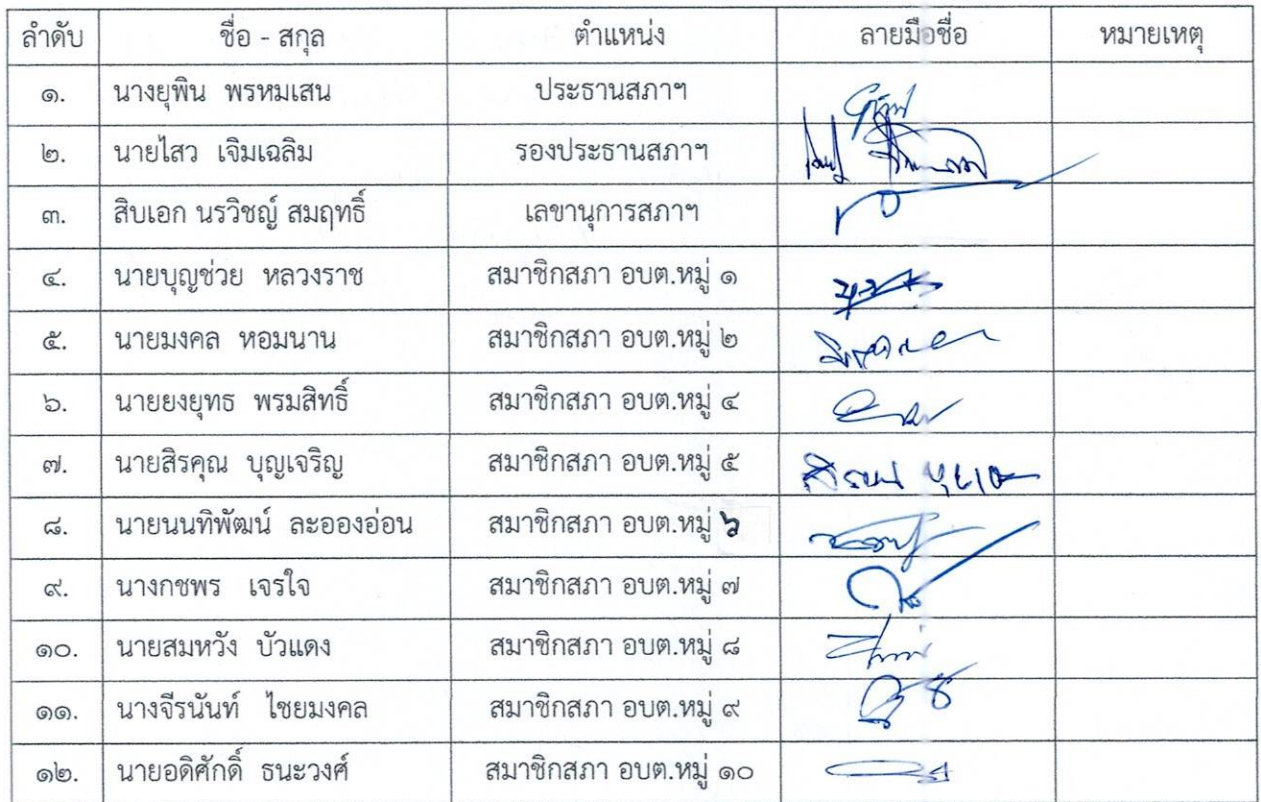 ลำดับ ชื่อ - สกุล ตำแหน่ง ลายมือชื่อ หมายเหตุ
๑. นางยุพิน พรหมเสน ประธานสภาฯ
๒. นายไสว เจิมเฉลิม รองประธานสภาฯ
๓. สิบเอก นรวิชญ์ สมฤทธิ์ เลขานุการสภาฯ
๔. นายบุญช่วย หลวงราช สมาชิกสภา อบต.หมู่ ๑
๕. นายมงคล หอมนาน สมาชิกสภา อบต.หมู่ ๒
๖. นายยงยุทธ พรมสิทธิ์ สมาชิกสภา อบต.หมู่ ๔
๗. นายสิรคุณ บุญเจริญ สมาชิกสภา อบต.หมู่ ๕
๘. นายนนทิพัฒน์ ละอองอ่อน สมาชิกสภา อบต.หมู่ ๖
๙. นางกชพร เจรใจ สมาชิกสภา อบต.หมู่ ๗
๑๐. นายสมหวัง บัวแดง สมาชิกสภา อบต.หมู่ ๘
๑๑. นางจีรนันท์ ไชยมงคล สมาชิกสภา อบต.หมู่ ๙
๑๒. นายอดิศักดิ์ ธนะวงศ์ สมาชิกสภา อบต.หมู่ ๑๐